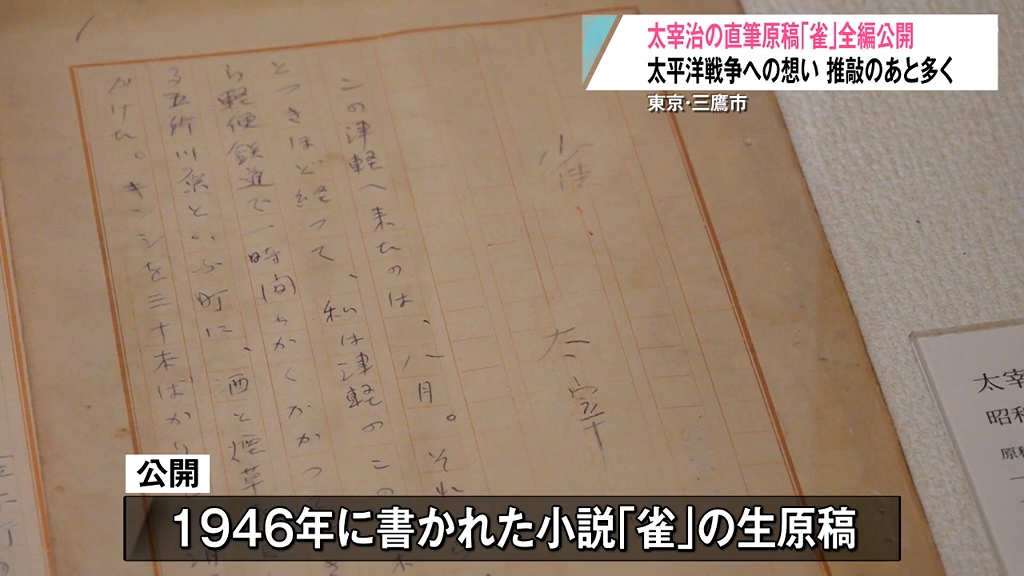 太宰治の直筆原稿「雀」全編公開
太平洋戦争への想い 推敲のあと多く
東京・三鷹市
雀
太宰
この津軽へ来たのは、八月。それ
とつきほど経つて、私は津軽のこの
ら軽便鉄道で一時間ちかくかかつて
る五所川原といふ町に、酒と煙草
がけた。キンシを三十本ばかり
太宰
昭和
原稿
公開
1946年に書かれた小説「雀」の生原稿